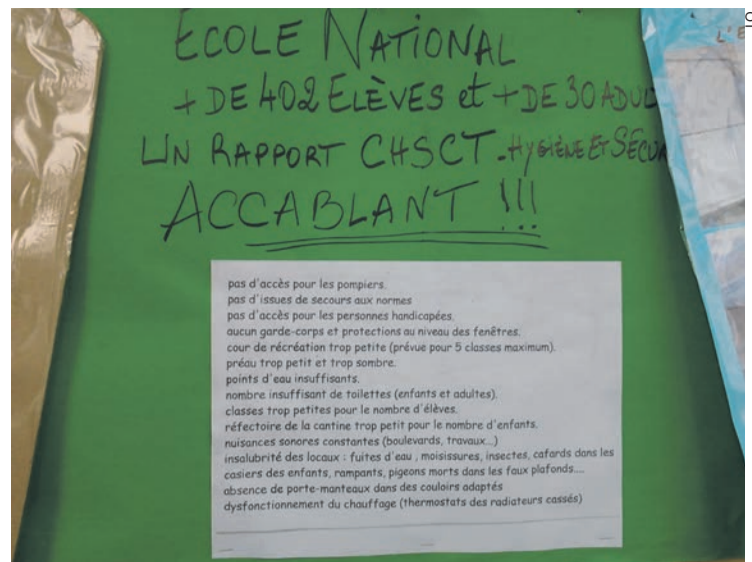 ECOLE NATIONAL
+ DE 402 ELÈVES et + DE 30 ADUL
UN RAPPORT CHSCT - HYGIÈNE ET SÉCUR
ACCABLANT !!!
pas d'accès pour les pompiers.
pas d'issues de secours aux normes
pas d'accès pour les personnes handicapées.
aucun garde-corps et protections au niveau des fenêtres.
cour de récréation trop petite (prévue pour 5 classes maximum).
préau trop petit et trop sombre.
points d'eau insuffisants.
nombre insuffisant de toilettes (enfants et adultes).
classes trop petites pour le nombre d'élèves.
réfectoire de la cantine trop petit pour le nombre d'enfants.
nuisances sonores constantes (boulevards, travaux...)
insalubrité des locaux : fuites d'eau , moisissures, insectes, cafards dans les
casiers des enfants, rampants, pigeons morts dans les faux plafonds....
absence de porte-manteaux dans des couloirs adaptés
dysfonctionnement du chauffage (thermostats des radiateurs cassés)